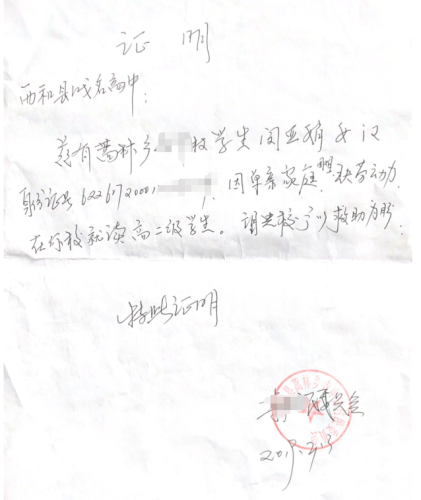 证 明
西和县成名高中:
兹有蒿林乡 校学生闵亚娟 女 汉
身份证号6226272000 ,因单亲家庭 缺劳动力.
在你校就读高二级学生。请贵校予以救助为盼.
特此证明
2017.2.13